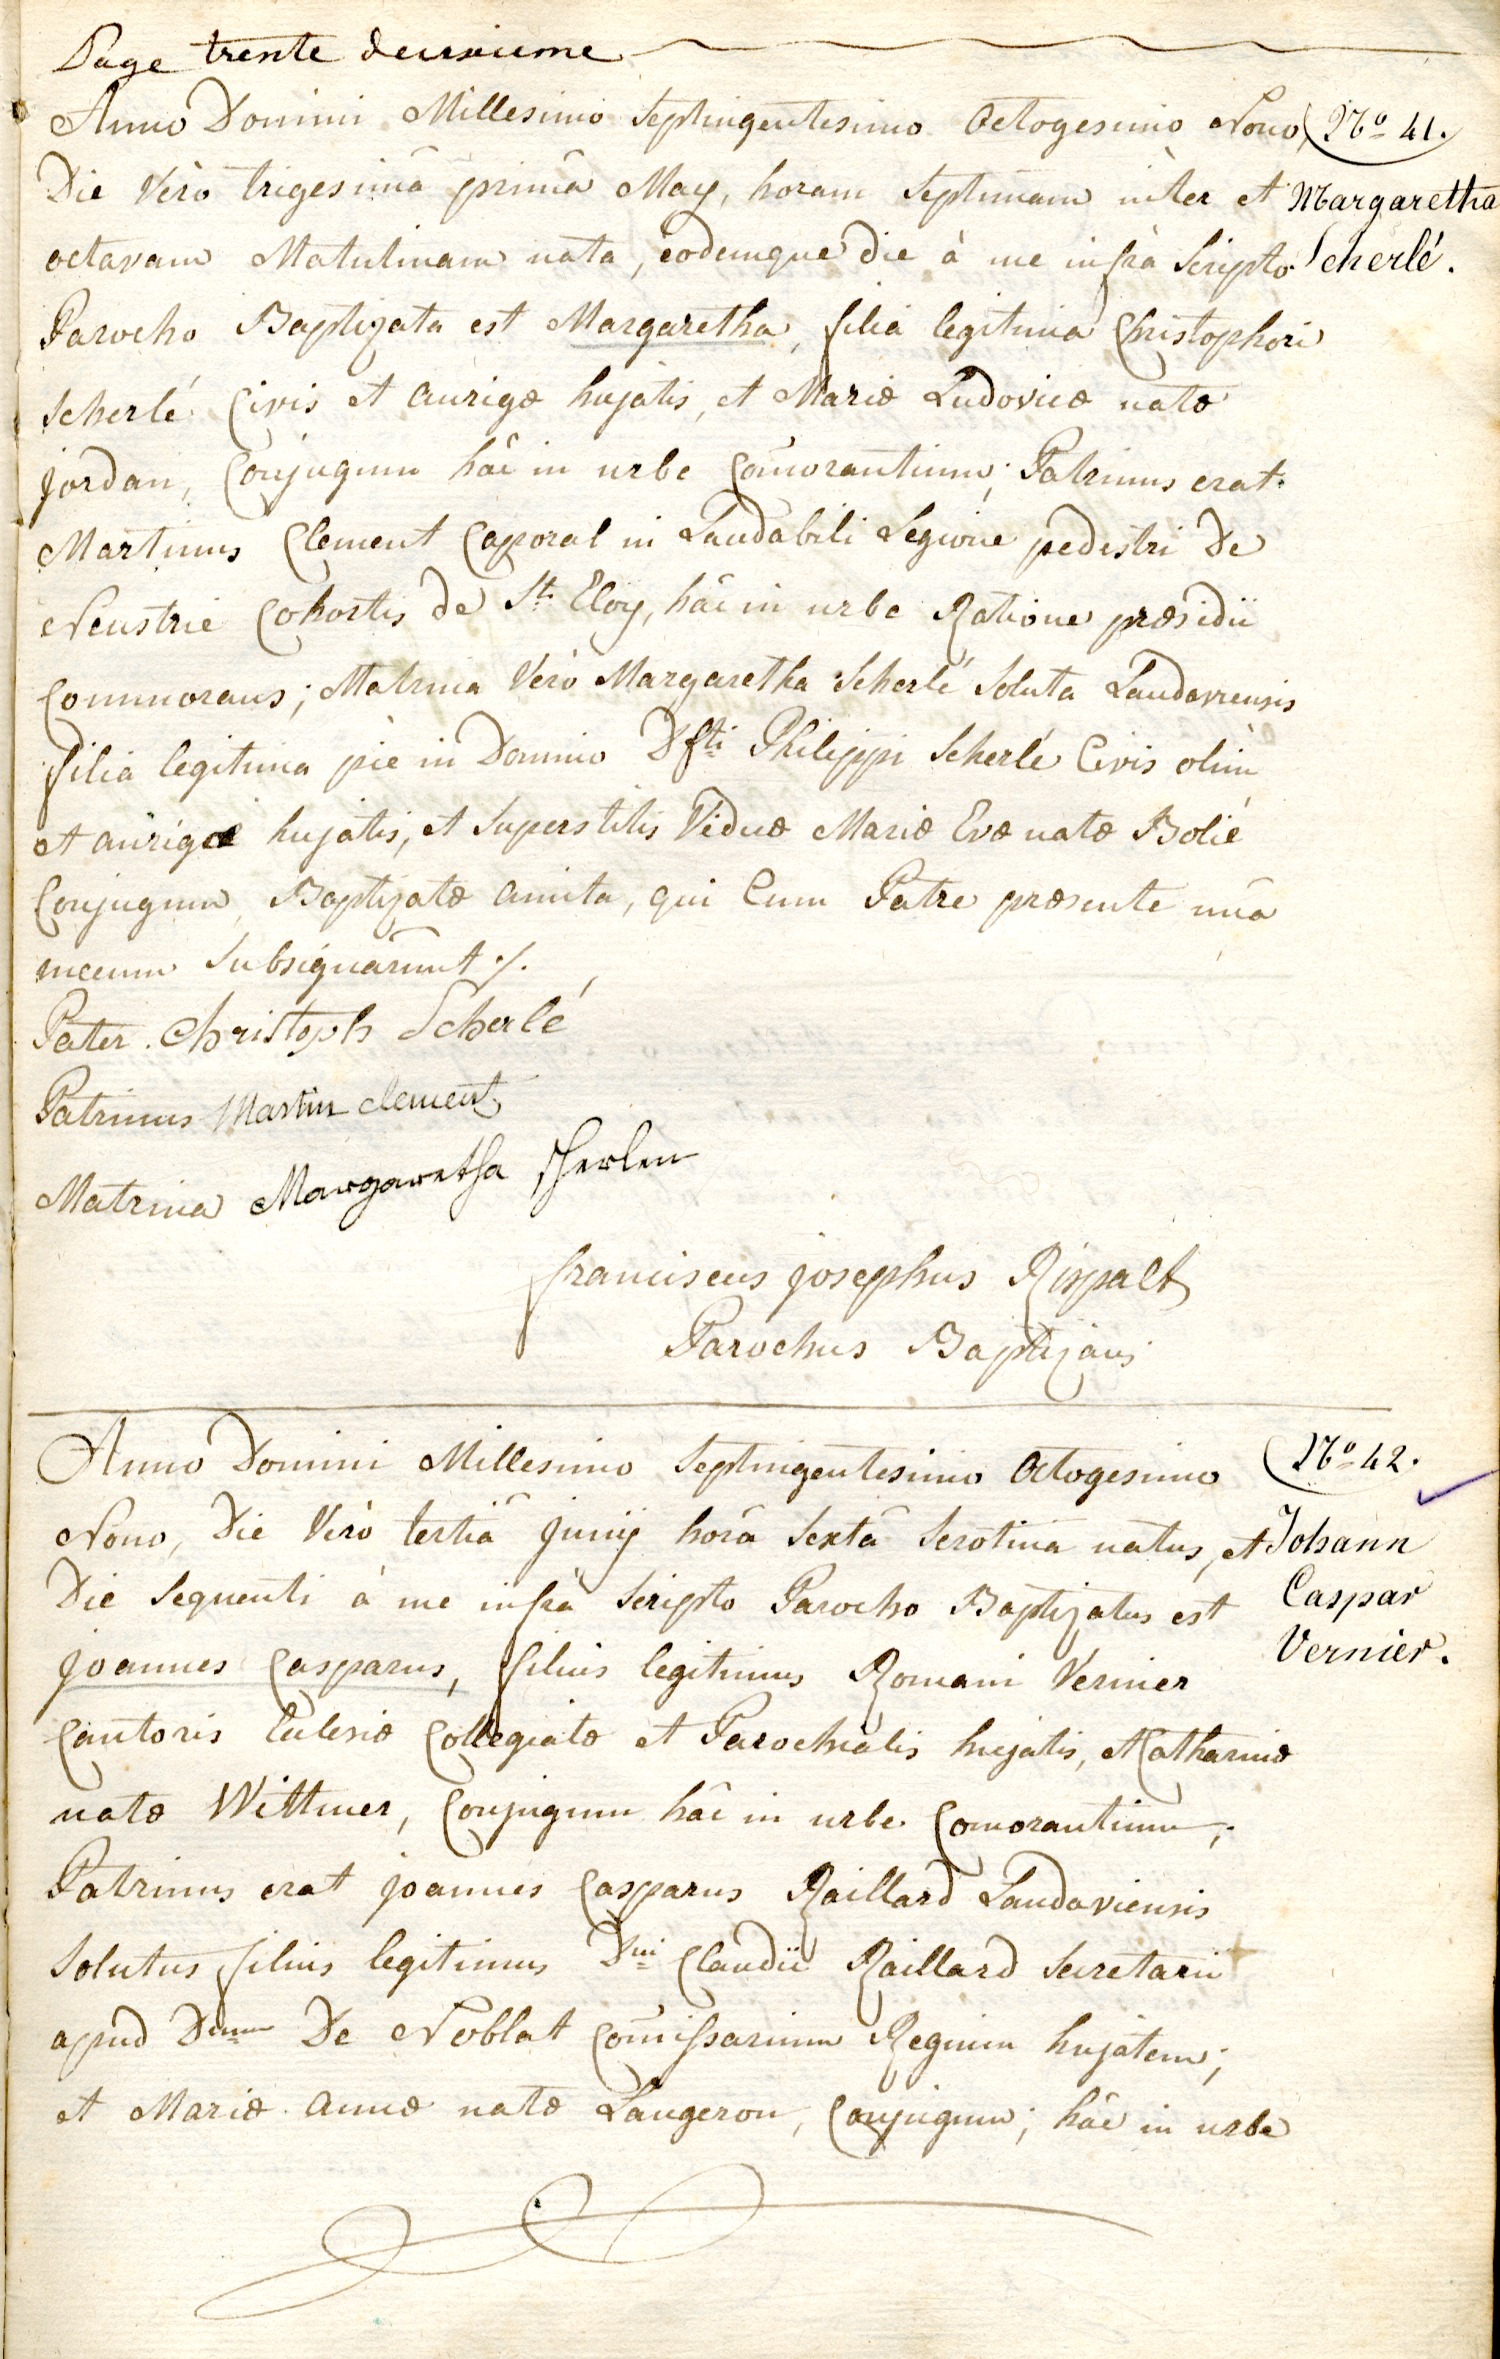 Page trente deuxieme
Anno Domini Millesimo Septingentesimo Octogesimo Nono, N.º 41.
Die Verò trigesimâ primâ May, horam Septimam inter et Margaretha
octavam Matutinam nata, eodemque die à me infrà Scripto Scherlé.
Parocho Baptizata est Margaretha, filia legitima Christophori
Scherlé Civis et aurigæ hujatis, et Mariæ Ludovicæ natæ
Jordan, Conjugum hâc in urbe Com̃orantium; Patrinus erat
Martinus Clement Caporal in Laudabili Legione pedestri De
Neustrie Cohortis de St. Eloy, hâc in urbe Ratione præsidii
Commorans; Matrina Verò Margaretha Scherlé Soluta Landaviensis
filia legitima piè in Domino Dfti Philippi Scherlé Civis olim
et aurigæ hujatis, et Superstitis Viduæ Mariæ Evæ natæ Bolié
Conjugum, Baptizatæ amita, qui Cum Patre præsente unà
mecum Subsignârunt ./.
Pater. Christoph Scherlé
Patrinus Martin clement
Matrina Margaretha Scherlen
franciscus josephus Rispalt
Parochus Baptizans
Anno Domini Millesimo Septingentesimo Octogesimo N.º 42.
Nono, Die Verò tertiâ Junij horâ Sextâ Serotinâ natus, et Johann
Die Sequenti à me infrà Scripto Parocho Baptizatus est Caspar
Joannes Casparus, filius legitimus Romani Vernier Vernier.
Cantoris Ecclesiæ Collegiatæ et Parochialis hujatis, et Catharinæ
natæ Wittmer, Conjugum hâc in urbe Comorantium;
Patrinus erat Joannes Casparus Raillard Landaviensis
Solutus filius legitimus Dni Claudii Raillard Secretarii
apud Dnum De Noblat Com̃issarium Regium hujatem;
et Mariæ annæ natæ Langeron, Conjugum; hâc in urbe